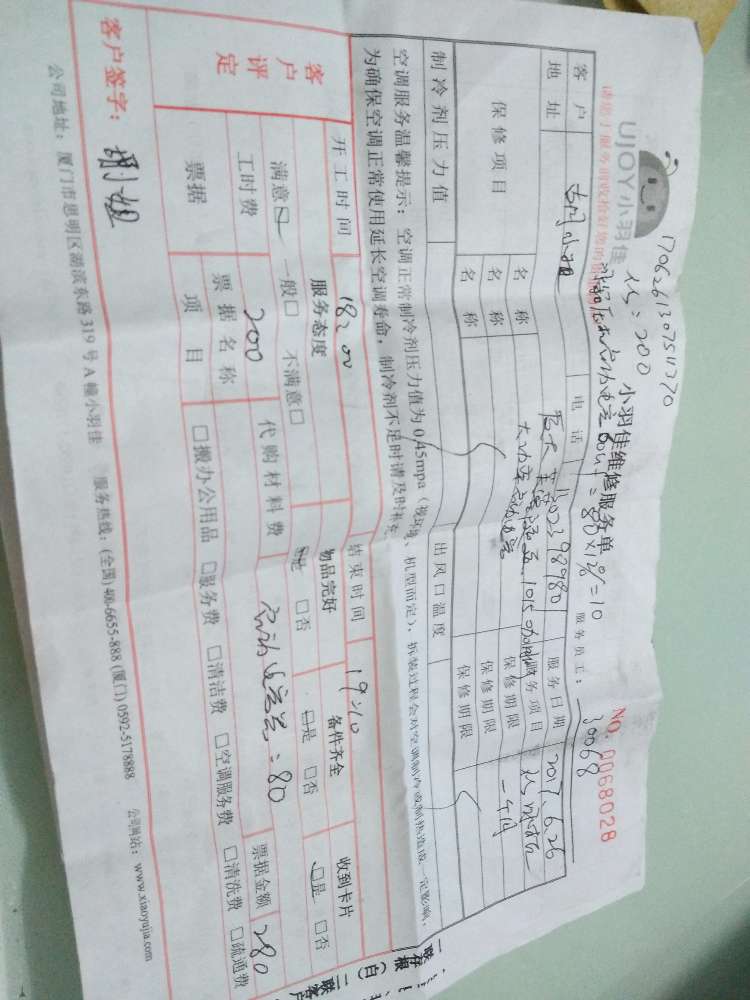 1706261307511770
UJOY小羽佳
小羽佳维修服务单
NO. 0068028
服务员工: 30068
客户
电话
服务日期 2017.6.26
地址
服务项目
保修项目
名称
保修期限
名称
保修期限
名称
保修期限
制冷剂压力值
出风口温度
空调服务温馨提示:空调正常制冷剂压力值为0.45mpa
为确保空调正常使用延长空调寿命,制冷剂不足时请及时补充
机型而定),拆装过程会对空调制冷或制热造成一定影响,
开工时间 18:00
结束时间 19:10
客户评定
服务态度
物品完好
备件齐全
收到卡片
满意□ 一般□ 不满意□
□是 □否
□是 □否
□是 □否
工时费 200
代购材料费 :80
票据金额 280
票据
票据名称
项目
□搬办公用品 □服务费 □清洁费 □空调服务费 □清洗费 □疏通费
客户签字: 胡小姐
公司地址:厦门市思明区湖滨东路319号A幢小羽佳 服务热线:(全国)400-6655-888 (厦门)0592-5178888 公司网站:www.xiaoyujia.com
一联存根(白) 二联客户